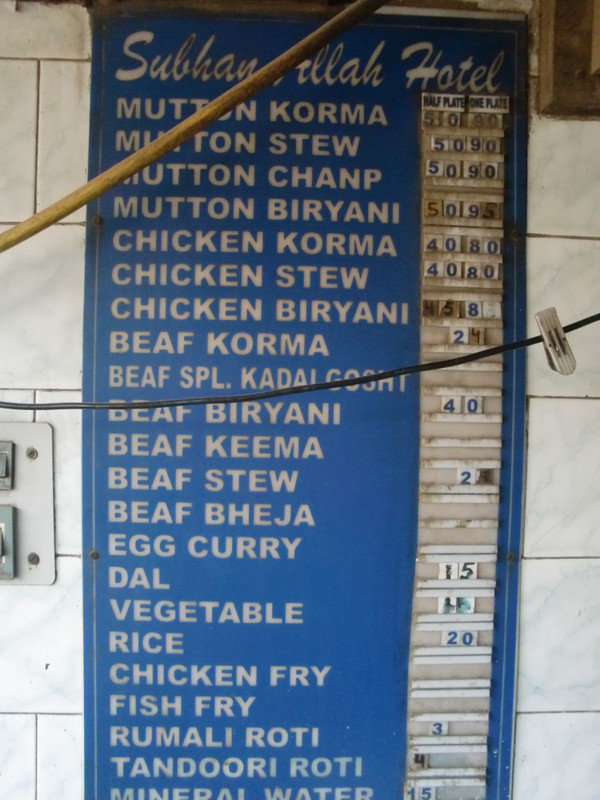 Subhan Allah Hotel
HALF PLATE ONE PLATE
MUTTON KORMA 50 90
MUTTON STEW 50 90
MUTTON CHANP 50 90
MUTTON BIRYANI 50 95
CHICKEN KORMA 40 80
CHICKEN STEW 40 80
CHICKEN BIRYANI 45
BEAF KORMA 24
BEAF SPL. KADAI GOSHT
BEAF BIRYANI 40
BEAF KEEMA
BEAF STEW
BEAF BHEJA
EGG CURRY
DAL 15
VEGETABLE
RICE 20
CHICKEN FRY
FISH FRY
RUMALI ROTI 3
TANDOORI ROTI 4
MINERAL WATER 15